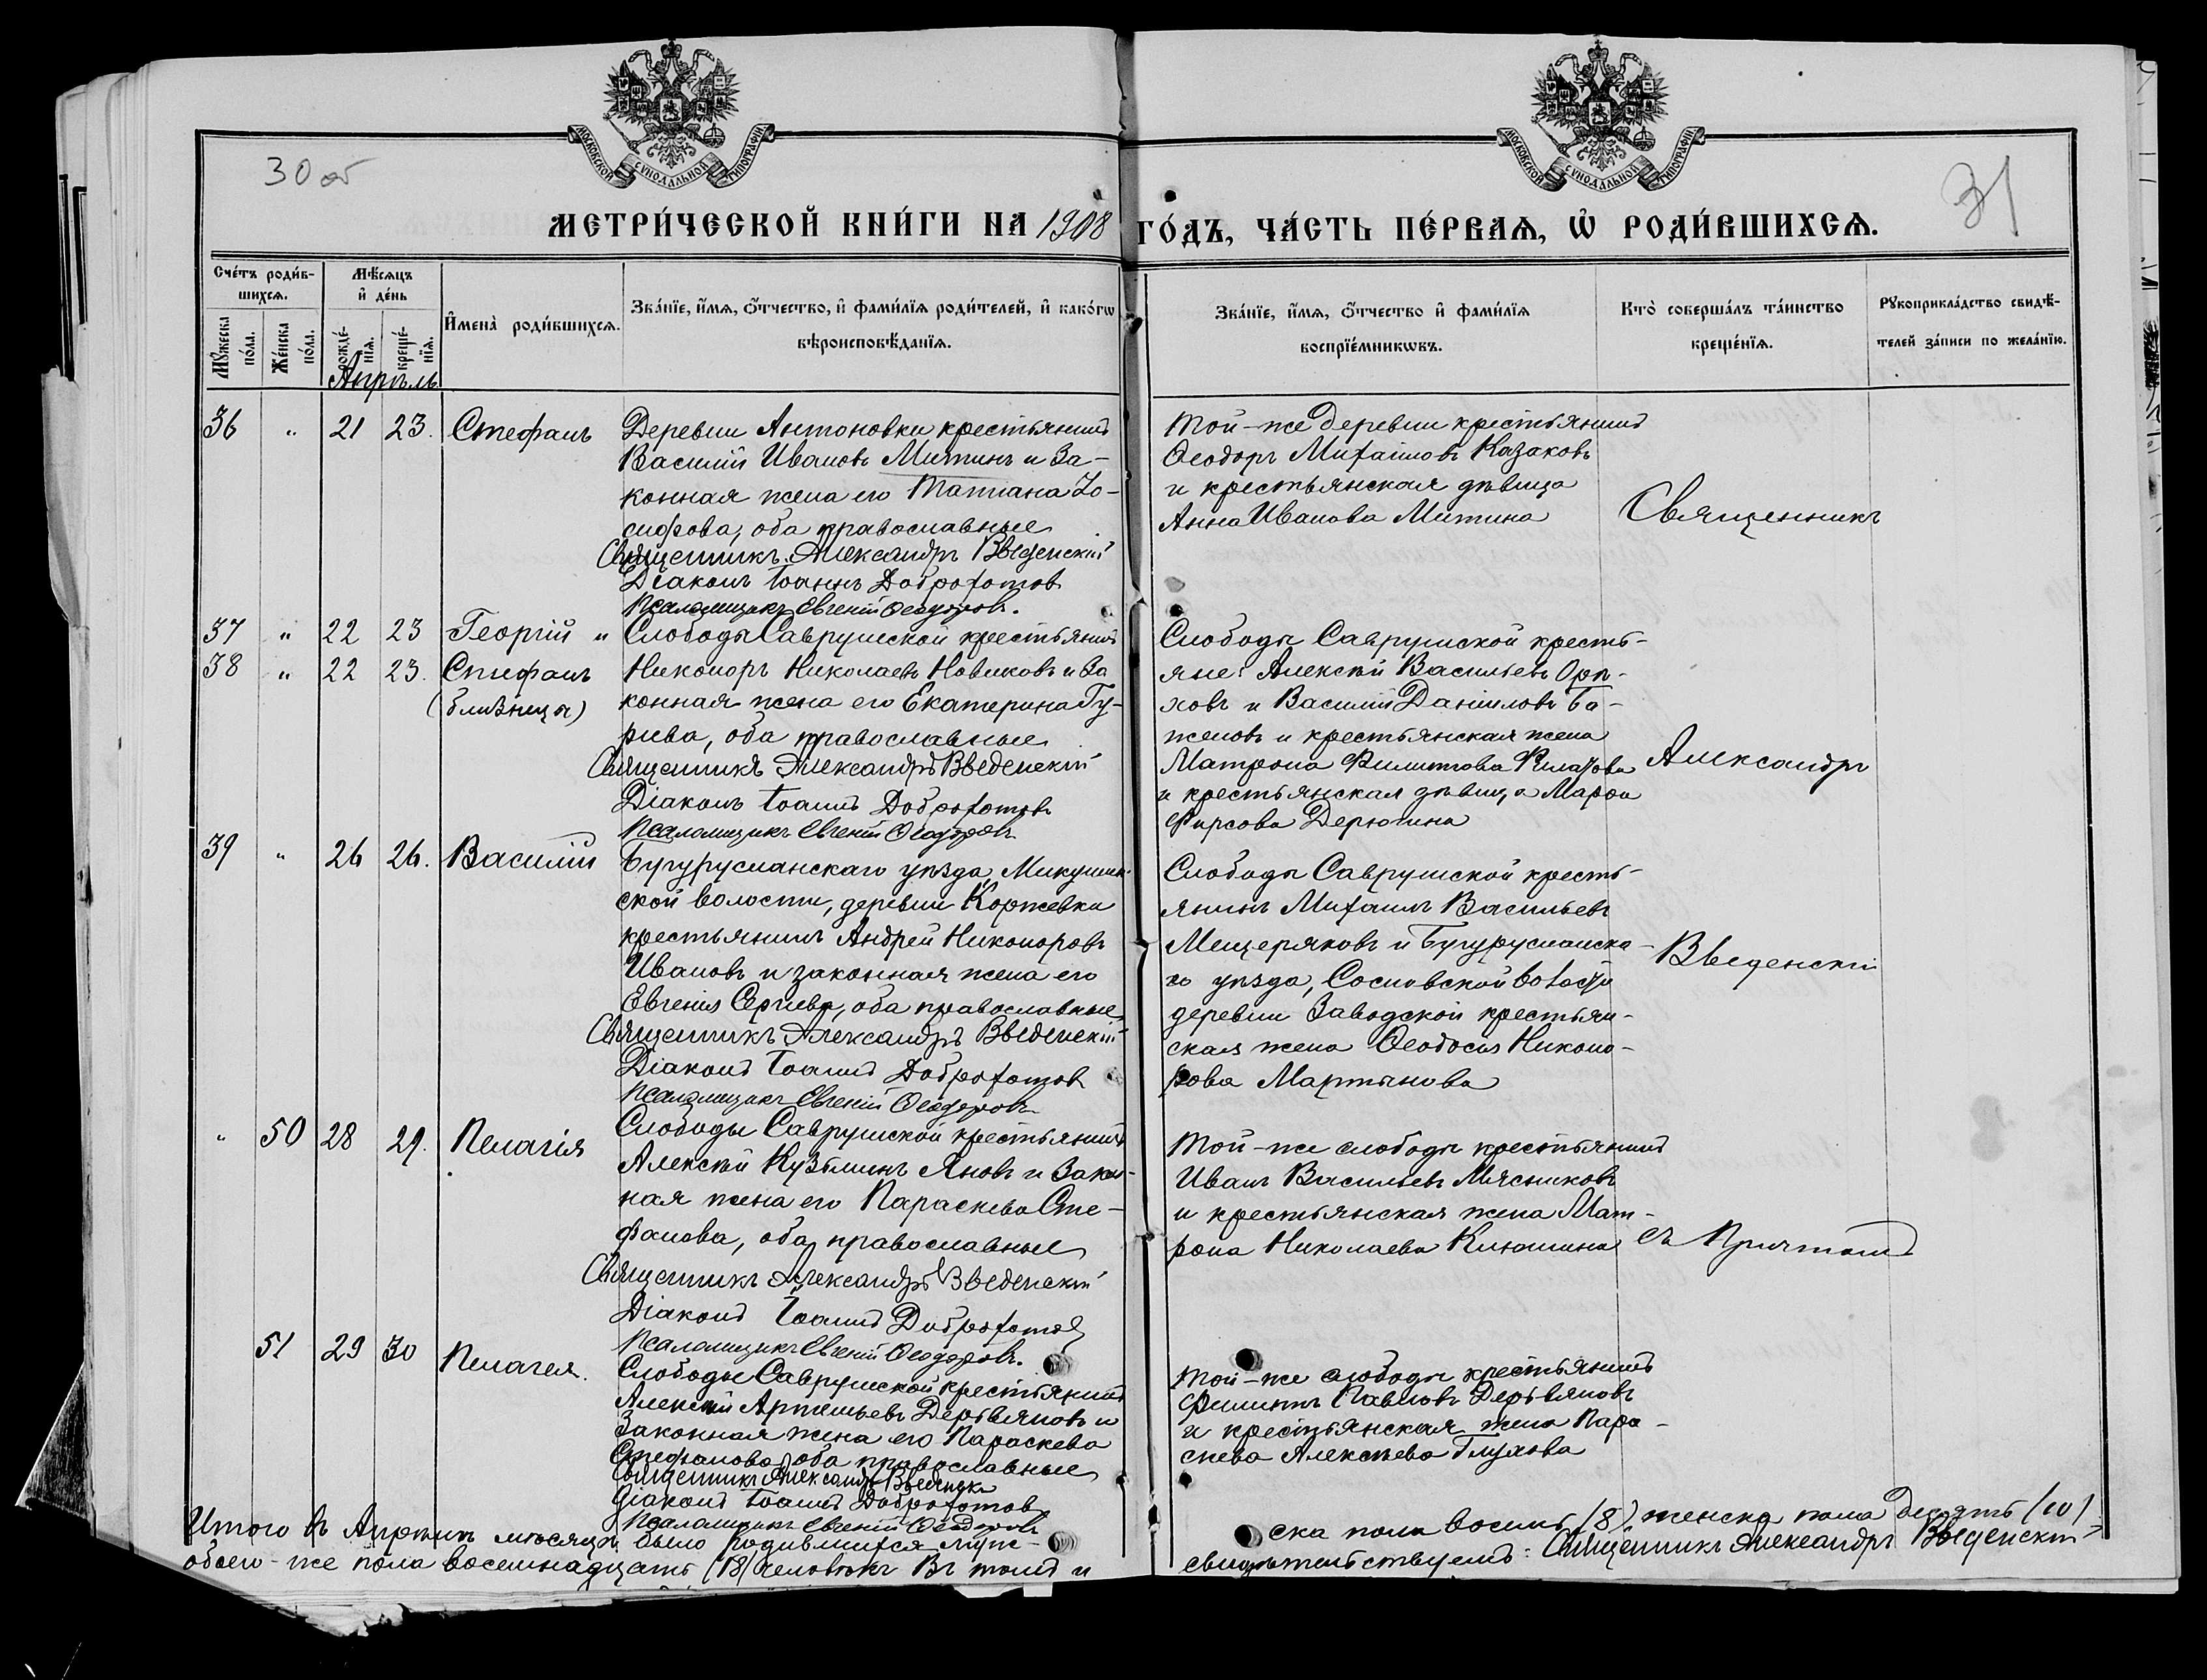 30 об
31
МОСКОВСКОЙ СѴНОДАЛЬНОЙ ТИПОГРАФІИ
МОСКОВСКОЙ СѴНОДАЛЬНОЙ ТИПОГРАФІИ
МЕТРИ́ЧЕСКОЙ КНИ́ГИ НА 1908 ГО́ДЪ, ЧА́СТЬ ПЕ́РВАѦ, Ѡ҆ РОДИ́ВШИХСѦ.
Сче́тъ роди́в-
шихсѧ.
Мѣ́сѧцъ
и҆ де́нь
Мꙋ́жеска
по́ла.
Же́нска
по́ла.
рожде́-
нїѧ.
креще́-
нїѧ.
И҆мена̀ роди́вшихсѧ.
Зва́нїе, и҆́мѧ, ѻ҆́тчество, и҆ фами́лїѧ роди́телей, и҆ како́гѡ
вѣроисповѣ́данїѧ.
Зва́нїе, и҆́мѧ, ѻ҆́тчество и҆ фами́лїѧ
воспрїе́мникѡвъ.
Кто̀ соверша́лъ та́инство
креще́нїѧ.
Рꙋкоприкла́дство свидѣ́-
телей за́писи по жела́нїю.
Апрѣль
36 " 21 23. Стефанъ
Деревни Антоновки крестьянинъ
Василій Ивановъ Митинъ и за-
конная жена его Татіана Іо-
сифова, оба православные
Священникъ Александръ Введенскій
Діаконъ Іоаннъ Доброхотов
Псаломщикъ Евгеній Ѳеодоровъ.
Той-же деревни крестьянинъ
Ѳеодоръ Михаиловъ Казаковъ
и крестьянская дѣвица
Анна Иванова Митина
Священникъ
37 " 22 23 Георгій "
38 " 22 23. Стефанъ
(близнецы)
Слободы Саврушской крестьянинъ
Никоноръ Николаевъ Новиковъ и за
конная жена его Екатерина Гу-
рьева, оба православные
Священникъ Александръ Введенскій
Діаконъ Іоаннъ Доброхотовъ
Псаломщикъ Евгеній Ѳеодоровъ
Слободы Саврушской кресть-
яне: Алексѣй Васильевъ Орѣ-
ховъ и Василій Даніиловъ Ба-
женовъ и крестьянская жена
Матрона Филиппова Филатова
и крестьянская дѣвица Марѳа
Фирсова Дерюгина
Александръ
39 " 26 26. Василій
Бугурусланскаго уѣзда, Микушин-
ской волости, деревни Коржевки
крестьянинъ Андрей Никоноровъ
Ивановъ и законная жена его
Евгенія Сергіева, оба православные
Священникъ Александръ Введенскій
Діаконъ Іоаннъ Доброхотов
Псаломщикъ Евгеній Ѳеодоровъ
Слободы Саврушской кресть-
янинъ Михаилъ Васильевъ
Мещеряковъ и Бугурусланска-
го уѣзда, Сосновской волости
деревни Заводской крестьян-
ская жена Ѳеодосія Никоно-
рова Мартынова
Введенскій
" 50 28 29. Пелагія
Слободы Саврушской крестьянинъ
Алексѣй Кузьминъ Яновъ и закон-
ная жена его Параскева Сте-
фанова, оба православные
Священникъ Александръ Введенскій
Діаконъ Іоаннъ Доброхотов
Псаломщикъ Евгеній Ѳеодоровъ.
Той-же слободы крестьянинъ
Иванъ Васильевъ Мясниковъ
и крестьянская жена Мат-
рона Николаева Клюшина
съ Причтомъ
51 29 30 Пелагея.
Слободы Саврушской крестьянинъ
Алексѣй Артемьевъ Деревяновъ и
законная жена его Параскева
Стефанова, оба православные
Священникъ Александръ Введенскій
Діаконъ Іоаннъ Доброхотовъ
Псаломщикъ Евгеній Ѳеодоровъ
Той-же слободы крестьянинъ
Филиппъ Павловъ Деревяновъ
и крестьянская жена Пара-
скева Алексѣева Глухова
Итого въ Апрѣлѣ мѣсяцѣ было родившихся муже-
ска пола восемь (8) женска пола десять (10)
обоего-же пола восемнадцать (18) человѣкъ Въ томъ и
свидѣтельствуемъ: Священникъ Александръ Введенскій